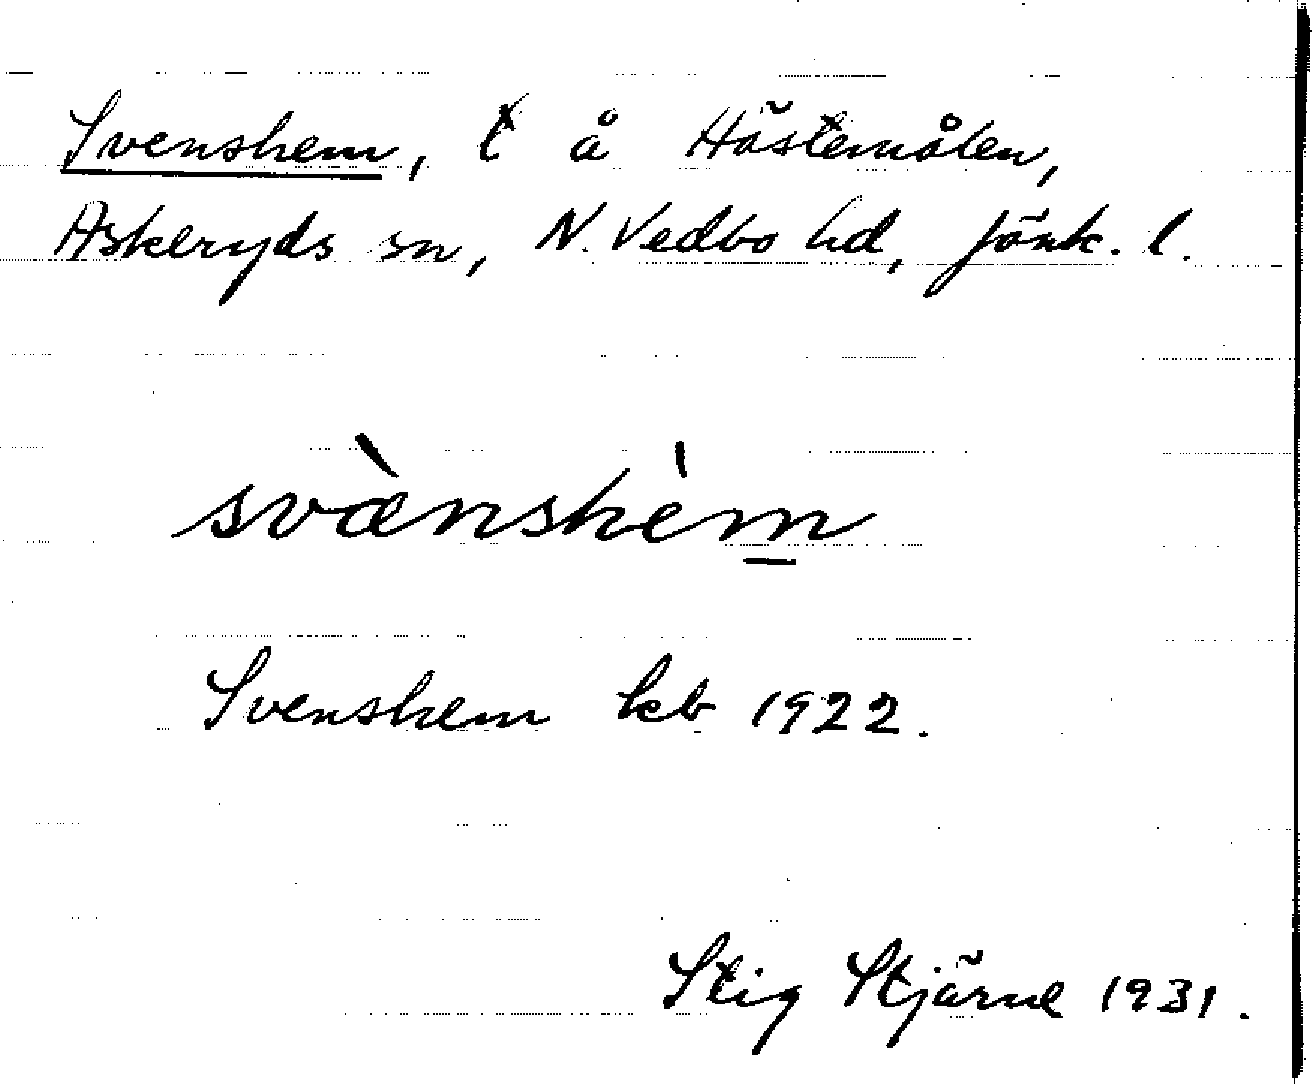 Svenshem, t å Hästemålen,
Askeryds sn, N. Vedbo hd, Jönk. l.
svæ̀nshèm̲
Svenshem kb 1922.
Stig Stjärne 1931.